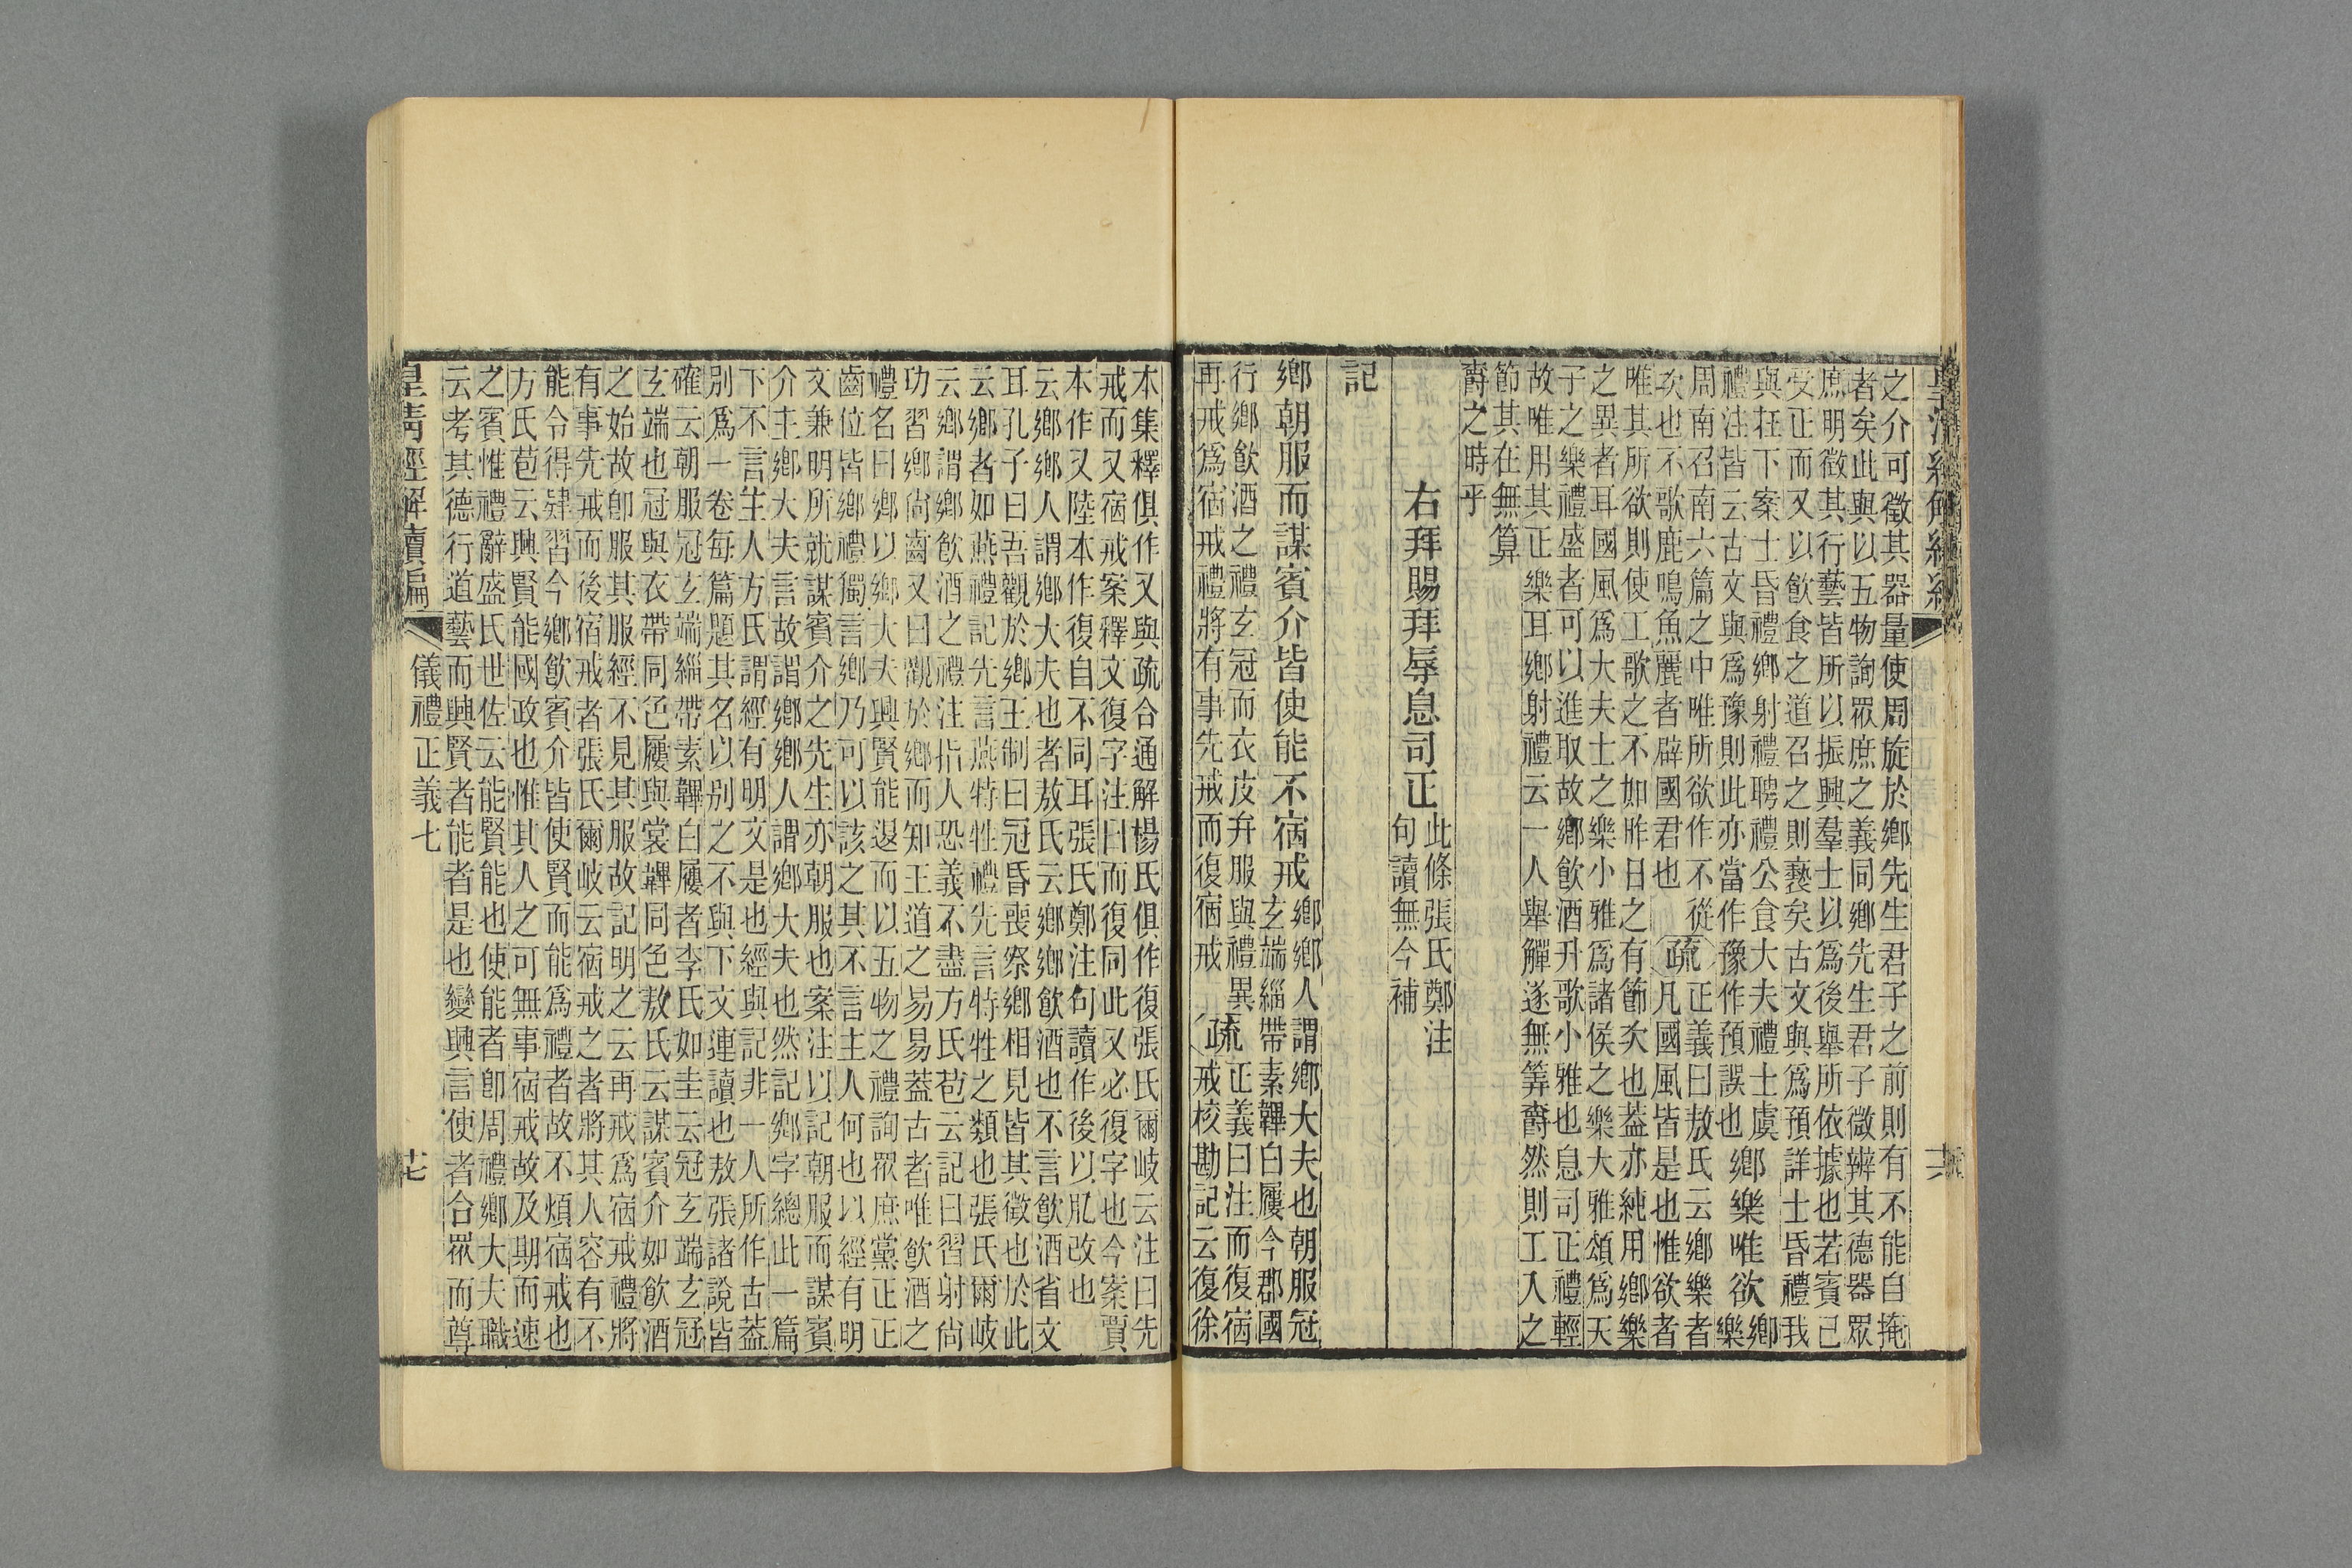 之介可徵其器量使周旋於鄉先生君子之前則有不能自掩
者矣此與以五物詢眾庶之義同鄉先生君子徵辨其德器眾
庶明徵其行藝皆所以振興羣士以爲後舉所依據也若賓已
受正而又以飮食之道召之則褻矣古文與爲預詳士昏禮我
與在下案士昏禮鄉射禮聘禮公食大夫禮士虞
禮注皆云古文與爲豫則此亦當作豫作預誤也
鄉樂唯欲
鄉樂
周南召南六篇之中唯所欲作不從
次也不歌鹿鳴魚麗者辟國君也
疏
正義曰敖氏云鄉樂者
凡國風皆是也惟欲者
唯其所欲則使工歌之不如昨日之有節次也葢亦純用鄉樂
之異者耳國風爲大夫士之樂小雅爲諸侯之樂大雅頌爲天
子之樂禮盛者可以進取故鄉飮酒升歌小雅也息司正禮輕
故唯用其正樂耳鄉射禮云一人舉觶遂無筭爵然則工入之
節其在無算
爵之時乎
右拜賜拜辱息司正
此條張氏鄭注
句讀無今補
記
鄉朝服而謀賓介皆使能不宿戒
鄉鄉人謂鄉大夫也朝服冠
玄端緇帶素韠白屨今郡國
行鄉飮酒之禮玄冠而衣皮弁服與禮異
再戒爲宿戒禮將有事先戒而復宿戒
疏
正義曰注而復宿
戒校勘記云復徐
本集釋俱作又與疏合通解楊氏俱作復張氏爾岐云注曰先
戒而又宿戒案釋文復字注曰而復同此又必復字也今案賈
本作又陸本作復自不同耳張氏鄭注句讀作後以肊改也
云鄉鄉人謂鄉大夫也者敖氏云鄉鄉飮酒也不言飮酒省文
耳孔子曰吾觀於鄉王制曰冠昏喪祭鄉相見皆其徵也於此
云鄉者如燕禮記先言燕特牲禮先言特牲之類也張氏爾岐
云鄉謂鄉飮酒之禮注指人恐義不盡方氏苞云記曰習射尚
功習鄉尚齒又曰觀於鄉而知王道之易易葢古者唯飮酒之
禮名曰鄉以鄉大夫興賢能退而以五物之禮詢眾庶黨正正
齒位皆鄉禮獨言鄉乃可以該之其不言主人何也以經有明
文兼明所就謀賓介之先生亦朝服也案注以記朝服而謀賓
介主鄉大夫言故謂鄉鄉人謂鄉大夫也然記鄉字總此一篇
下不言主人方氏謂經有明文是也經與記非一人所作古葢
別爲一卷每篇題其名以别之不與下文連讀也敖張諸說皆
確云朝服冠玄端緇帶素韠白屨者李氏如圭云冠玄端玄冠
玄端也冠與衣帶同色屨與裳韠同色敖氏云謀賓介如飮酒
之始故卽服其服經不見其服故記明之云再戒爲宿戒禮將
有事先戒而後宿戒者張氏爾岐云宿戒之者將其人容有不
能令得肄習今鄉飮賓介皆使賢而能爲禮者故不煩宿戒也
方氏苞云興賢能國政也惟其人之可無事宿戒故及期而速
之賓惟禮辭盛氏世佐云能賢能也使能者卽周禮鄉大夫職
云考其德行道藝而興賢者能者是也變興言使者合眾而尊
皇淸經解續編
儀禮正義七